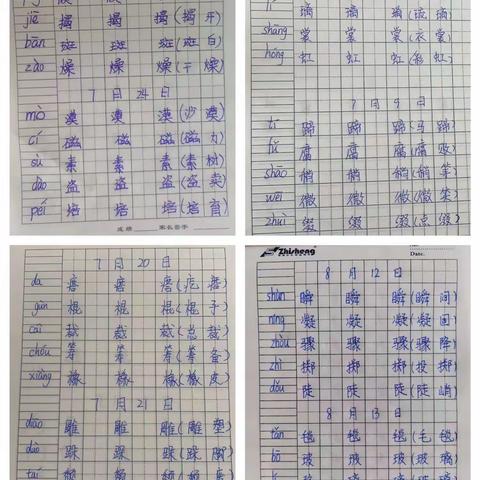 jiē 揭 揭 揭(揭开)
bān 斑 斑 斑(斑白)
zào 燥 燥 燥(干燥)
7月24日
mò 漠 漠 漠(沙漠)
cí 磁 磁 磁(磁力)
sù 素 素 素(素材)
dào 盗 盗 盗(盗卖)
péi 培 培 培(培育)
成绩 家长签字
璃 璃 璃(玻璃)
shang 裳 裳 裳(衣裳)
hóng 虹 虹 虹(彩虹)
7月9日
tí 蹄 蹄 蹄(马蹄)
fǔ 腐 腐 腐(腐败)
shāo 稍 稍 稍(稍等)
wēi 微 微 微(微笑)
zhuì 缀 缀 缀(点缀)
7月20日
da 瘩 瘩 瘩(疙瘩)
gùn 棍 棍 棍(棍子)
cái 裁 裁 裁(总裁)
chóu 筹 筹 筹(筹备)
xiàng 橡 橡 橡(橡皮)
7月21日
diāo 雕 雕 雕(雕塑)
duò 跺 跺 跺(跺脚)
Zhisheng
Date.
8月12日
shùn 瞬 瞬 瞬(瞬间)
níng 凝 凝 凝(凝固)
zhòu 骤 骤 骤(骤降)
zhì 掷 掷 掷(投掷)
dǒu 陡 陡 陡(陡峭)
8月13日
tǎn 毯 毯 毯(毛毯)
bō 玻 玻 玻(玻璃)